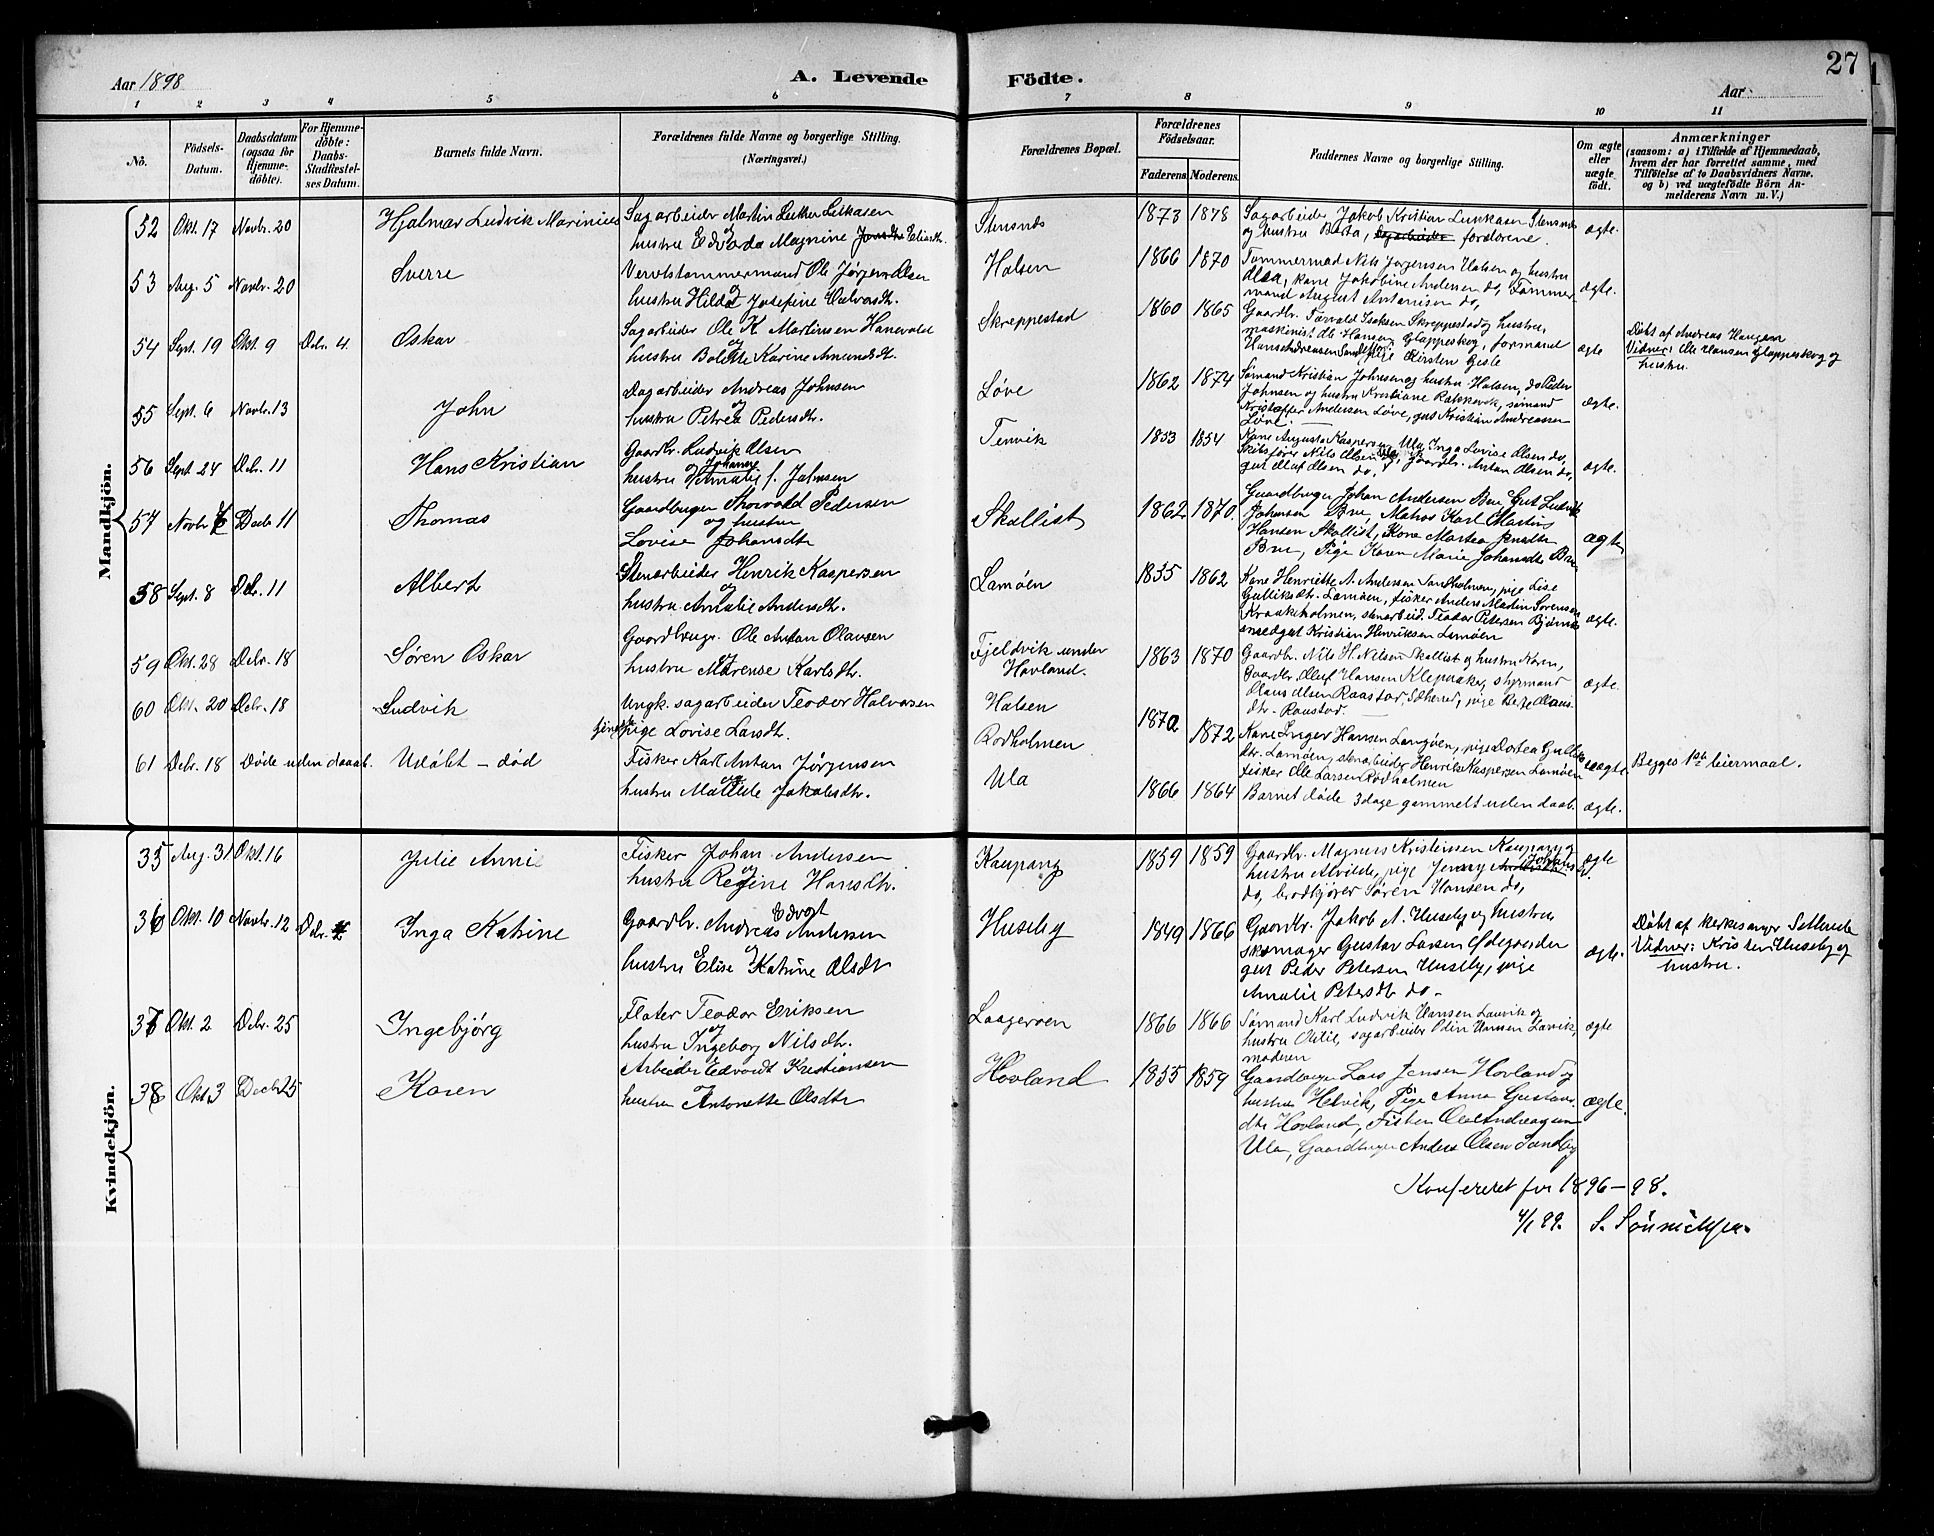 27
Aar 1898
A. Levende Födte.
Aar
1 2 3 4 5 6 7 8 9 10 11
No.
Födsels-Datum.
Daabsdatum (ogsaa för Hjemme-döbte).
For Hjemme-döbte: Daabs-Stadfæstel-ses Datum.
Barnets fulde Navn.
Forældrenes fulde Navne og borgerlige Stilling. (Næringsvei.)
Forældrenes Bopæl.
Forældrenes Födselsaar.
Faderens. Moderens.
Faddernes Navne og borgerlige Stilling.
Om ægte eller uægte födt.
Anmærkninger
(saasom: a) i Tilfælde af Hjemmedaab,
hvem der har forrettet samme, med
Tilföielse af to Daabsvidners Navne,
og b) ved uægtefödte Börn An-
melderens Navn m. V.)
Mandkjön.
52 Okt. 17 Novbr. 20 Hjalmar Ludvik Marinius
Sagarbeider Martin Lukkasen
og hustru Edvarda Magnine Eliasdtr.
Stensnes 1873 1878
Sagarbeider Jakob Kristian Lukkasen Stensnes
og hustru Berta, forældrene.
ægte.
53 Aug. 5 Novbr. 20 Sverre
Vervstømmermand Ole Jørgen Olsen
og hustru Hilda Josefine Halvorsdtr.
Halsen 1866 1870
Tømmermad Nils Jørgensen Halsen og hustru
Olea, kone Jakobine Andersen do, Tømmer-
mand August Antonisen do,
ægte.
54 Sept. 19 Okt. 9 Debr. 4. Oskar
Sagarbeider Ole K. Martinsen Hanevold
og hustru Bolette Karine Amundsdtr.
Skreppestad 1860 1865
Gaardbr. Torvald Isaksen Skreppestad og hustru,
maskinist Ole Hansen Glappeskog, formand
Hans Andreasen Sandefjord, pige Kirsten Gisle
ægte
Døbt af Andreas Haugen
Vidner: Ole Hansen Glappeskog og
hustru.
55 Sept. 6 Novbr. 13 John
Dagarbeider Andreas Johnsen
og hustru Petrea Pedersdtr.
Løve 1862 1874
Sømand Kristian Johnsen og hustru Halsen, do Peder
Johnsen og hustru Kristiane Rakkevik, sømand
Kristoffer Andersen Løve, gut Kristian Andreassen
Løve.
ægte.
56 Sept. 24 Debr. 11 Hans Kristian
Gaardbr. Ludvik Olsen
og hustru Johanne Amalie f. Johnsen
Tenvik 1853 1854
Kone Augusta Kaspersen Ula, Inga Lovise Olsen do,
Skibsfører Nils Olsen Ula, Gaardbr. Anton Olsen do,
gut Oluf Olsen do,
ægte.
57 Novbr 6 Decbr 11 Thomas
Gaardbruger Thorvald Pedersen
og hustru
Lovise Johansdtr
Skallist 1862. 1870.
Gaardbruger Johan Andersen Bøe Gut Ludvik
Johansen Bøe, Matros Karl Martin
Hansen Skallist, Kone Martea
Bøe, Pige Karen Marie Johansdtr Bøe
ægte
58 Sept. 8 Debr. 11 Albert
Stenarbeider Henrik Kaspersen
og hustru Amalie Andersdtr.
Lamøen 1855 1862
Kone Henriette A. Andersen Sandholmen, pige Lise
Gulliksdtr. Lamøen, fisker Anders Martin Sørensen
Kraakeholmen, stenarbeid. Teodor Petersen Bjønnes
Kristian Henriksen Lamøen
ægte.
59 Okt. 28 Debr. 18 Søren Oskar
Gaardbruger Ole Anton Olausen
og hustru Marense Karlsdtr.
Fjeldvik under Hovland. 1863 1870
Gaardbr. Nils H. Nilsen Skallist og hustru Karen,
Gaardbr. Oluf Hansen Klepaker, styrmand
Olaus Olsen Raastad, Sdherred, pige Berte Olaus-
dtr. Raastad.
ægte.
60 Okt. 20 Debr. 18 Ludvik
Ungk. sagarbeider Teodor Halvorsen
pige Lovise Larsdtr.
Halsen
Rødholmen 1870 1872
Kone Inger Hansen Lamøen, pige Dortea Gulliks-
dtr. Lamøen, stenarbeider Henrik Kaspersen Lamøen
fisker Ole Larsen Rødholmen
uægte.
Begges 1ste leiermaal.
61 Debr. 18 Døde uden daab. Udøbt – død
Fisker Karl Anton Jørgensen
og hustru Matilde Jakobsdtr.
Ula 1866 1864
Barnet døde 3 dage gammelt uden daab.
ægte.
Kvindekjön.
35 Aug. 31 Okt. 16 Julie Annie
Fisker Johan Andersen
og hustru Regine Hansdtr.
Kaupang 1859 1859
Gaardbr. Magnus Kristensen Kaupang og
hustru Alvilde, pige Jenny
do, brødkjører Søren Hansen do,
ægte
36 Okt. 10 Novbr. 12 Debr. Inga Katrine
Gaardbr. Andreas Edvart Andersen
og hustru Elise Katrine Olsdtr
Huseby 1849 1866
Gaardbr. Jakob A. Huseby og hustru
skomager Gustav Larsen Ødegaarden
gut Peder Petersen Huseby, pige
Amalie Petersdtr do –
ægte.
Døbt af kirkesanger Settende
Vidner: Kristen Huseby og
hustru.
37 Okt. 2 Debr. 25 Ingebjørg
Fløter Teodor Eriksen
og hustru Ingeborg Nilsdtr.
Laagerøen 1866 1866
Sømand Karl Ludvik Hansen Laurvik og
hustru Otilie, sagarbeider Odin Hansen Larvik,
moderen
ægte
38 Okt. 3 Decbr 25 Karen
Arbeider Edvardt Kristiansen
og hustru Antonette Olsdtr
Hovland 1855 1859
Gaardbruger Lars Jensen Hovland og
hustru Helvik, Pige Anna Gustavs-
dtr Hovland, Fisker Ole Andreasen
Ula, Gaardbruger Anders Olsen Sandby
ægte.
Konfereret for 1896–98.
4/1 99. S. Sönnichsen.